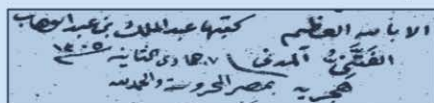 الا بالله العظيم كتبها عبد الملك بن عبد الوهاب
الفتني المدني ٧ جمادى الثانية ١٣٠٥
هجرية بمصر المحروسة والحمد لله